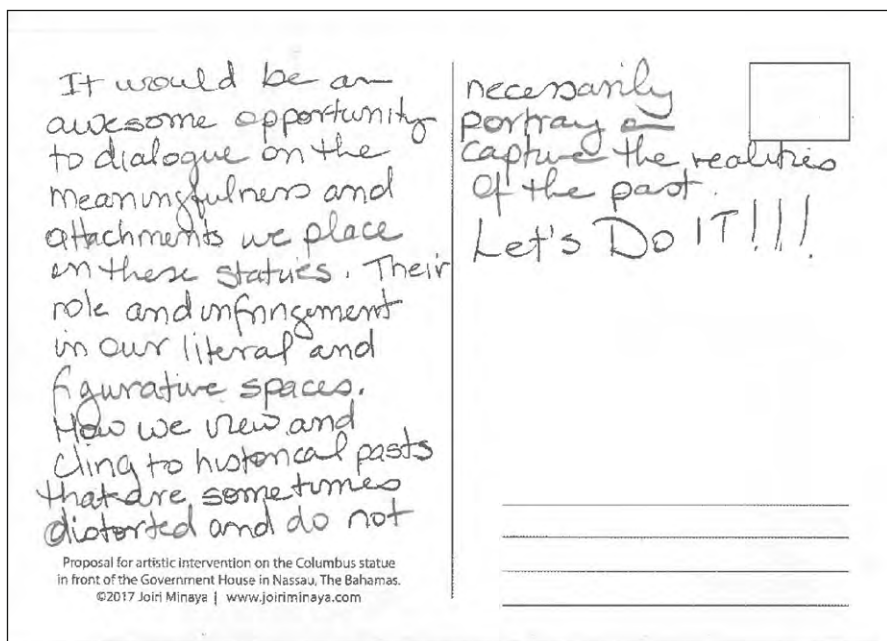 It would be an
awesome opportunity
to dialogue on the
meaningfulness and
attachments we place
on these statues. Their
role and infringement
in our literal and
figurative spaces.
How we view and
cling to historical pasts
that are sometimes
distorted and do not
Proposal for artistic intervention on the Columbus statue
in front of the Government House in Nassau, The Bahamas.
©2017 Joiri Minaya | www.joiriminaya.com
necessarily
portray or
capture the realities
of the past.
Let's Do IT!!!